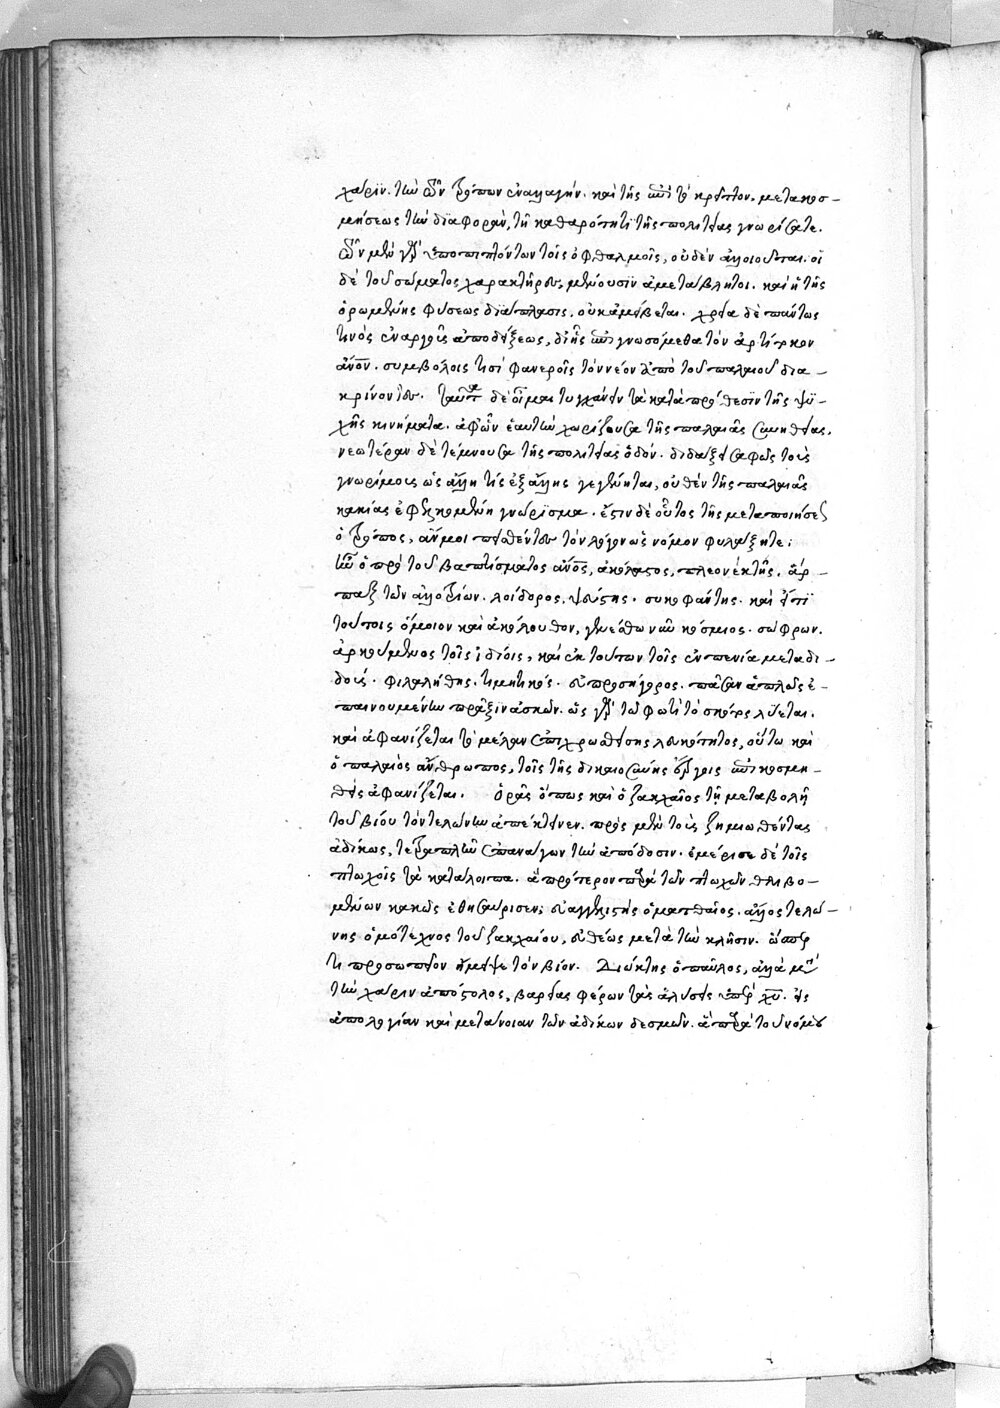 χάριν. τὴν τῶν τρόπων ἐναλλαγήν. καὶ τῆς ἐπὶ τὸ κρεῖττον. μετακοσ-
μήσεως τὴν διαφορὰν, τῇ καθαρότητι τῆς πολιτείας γνωρίσατε.
τῶν μὲν γὰρ ὑποπιπτόντων τοῖς ὀφθαλμοῖς, οὐδὲν ἀλλοιοῦται. οἱ
δὲ τοῦ σώματος χαρακτῆρες, μένουσιν ἀμετάβλητοι. καὶ ἡ τῆς
ὁρωμένης φύσεως διάπλασις, οὐκ ἀμείβεται. χρεία δὲ πάντως
τινὸς ἐναργοῦς ἀποδείξεως, δι' ἧς ἐπιγνωσόμεθα τὸν ἀρτίτοκον
ἄνον. συμβόλοις τισὶ φανεροῖς τὸν νέον ἀπὸ τοῦ παλαιοῦ δια-
κρίνοντες. ταῦτα δὲ οἶμαι τυγχάνειν τὰ κατὰ πρόθεσιν τῆς ψυ-
χῆς κινήματα. ἀφ' ὧν ἑαυτὴν χωρίζουσα τῆς παλαιᾶς συνηθείας.
νεωτέραν δὲ τέμνουσα τῆς πολιτείας ὁδόν. διδάξει σαφῶς τοὺς
γνωρίμους ὡς ἄλλη τίς ἐξ ἄλλης γεγένηται, οὐθὲν τῆς παλαιᾶς
κακίας ἐφελκομένη γνώρισμα. ἔστιν δὲ οὗτος τῆς μεταποιήσεως
ὁ τρόπος, ἄν μοι πεισθέντες τὸν λόγον ὡς νόμον φυλάξητε:
ἦν ὁ πρὸ τοῦ βαπτίσματος ἄνος, ἀκόλαστος, πλεονέκτης. ἅρ-
παξ τῶν ἀλλοτρίων. λοίδορος. ψεύστης. συκοφάντης. καὶ εἴ τι
τούτοις ὅμοιον καὶ ἀκόλουθον, γενέσθω νῦν κόσμιος. σώφρων.
ἀρκούμενος τοῖς ἰδίοις, καὶ ἐκ τούτων τοῖς ἐν πενίᾳ μεταδι-
δούς. φιλαλήθης. τιμητικός. εὐπροσήγορος. πᾶσαν ἁπλῶς ἐ-
παινουμένην πρᾶξιν ἀσκῶν. ὡς γὰρ τῷ φωτὶ τὸ σκότος λύεται.
καὶ ἀφανίζεται τὸ μέλαν ἐπιχρωσθείσης λευκότητος, οὕτω καὶ
ὁ παλαιὸς ἄνθρωπος, τοῖς τῆς δικαιοσύνης ἔργοις ἐπικοσμη-
θεὶς ἀφανίζεται. Ὁρᾷς ὅπως καὶ ὁ ζακχαῖος τῇ μεταβολῇ
τοῦ βίου τὸν τελώνην ἀπέκτεινεν. πρὸς μὲν τοὺς ζημιωθέντας
ἀδίκως, τετραπλῆν ἐπανάγων τὴν ἀπόδοσιν. ἐμέρισε δὲ τοῖς
πτωχοῖς τὰ κατάλοιπα. ἃ πρότερον παρὰ τῶν πτωχῶν θλιβο-
μένων κακῶς ἐθησαύρισεν; εὐαγγελιστὴς ὁ ματθαῖος. ἄλλος τελώ-
νης ὁμότεχνος τοῦ ζακχαίου, εὐθέως μετὰ τὴν κλῆσιν. ὥσπερ
τι προσωπεῖον ἤμειψε τὸν βίον. Διώκτης ὁ παῦλος, ἀλλὰ μετὰ
τὴν χάριν ἀπόστολος, βαρείας φέρων τὰς ἁλύσεις ὑπὲρ χυ. εἰς
ἀπολογίαν καὶ μετάνοιαν τῶν ἀδίκων δεσμῶν. ἃ παρὰ τοῦ νόμου